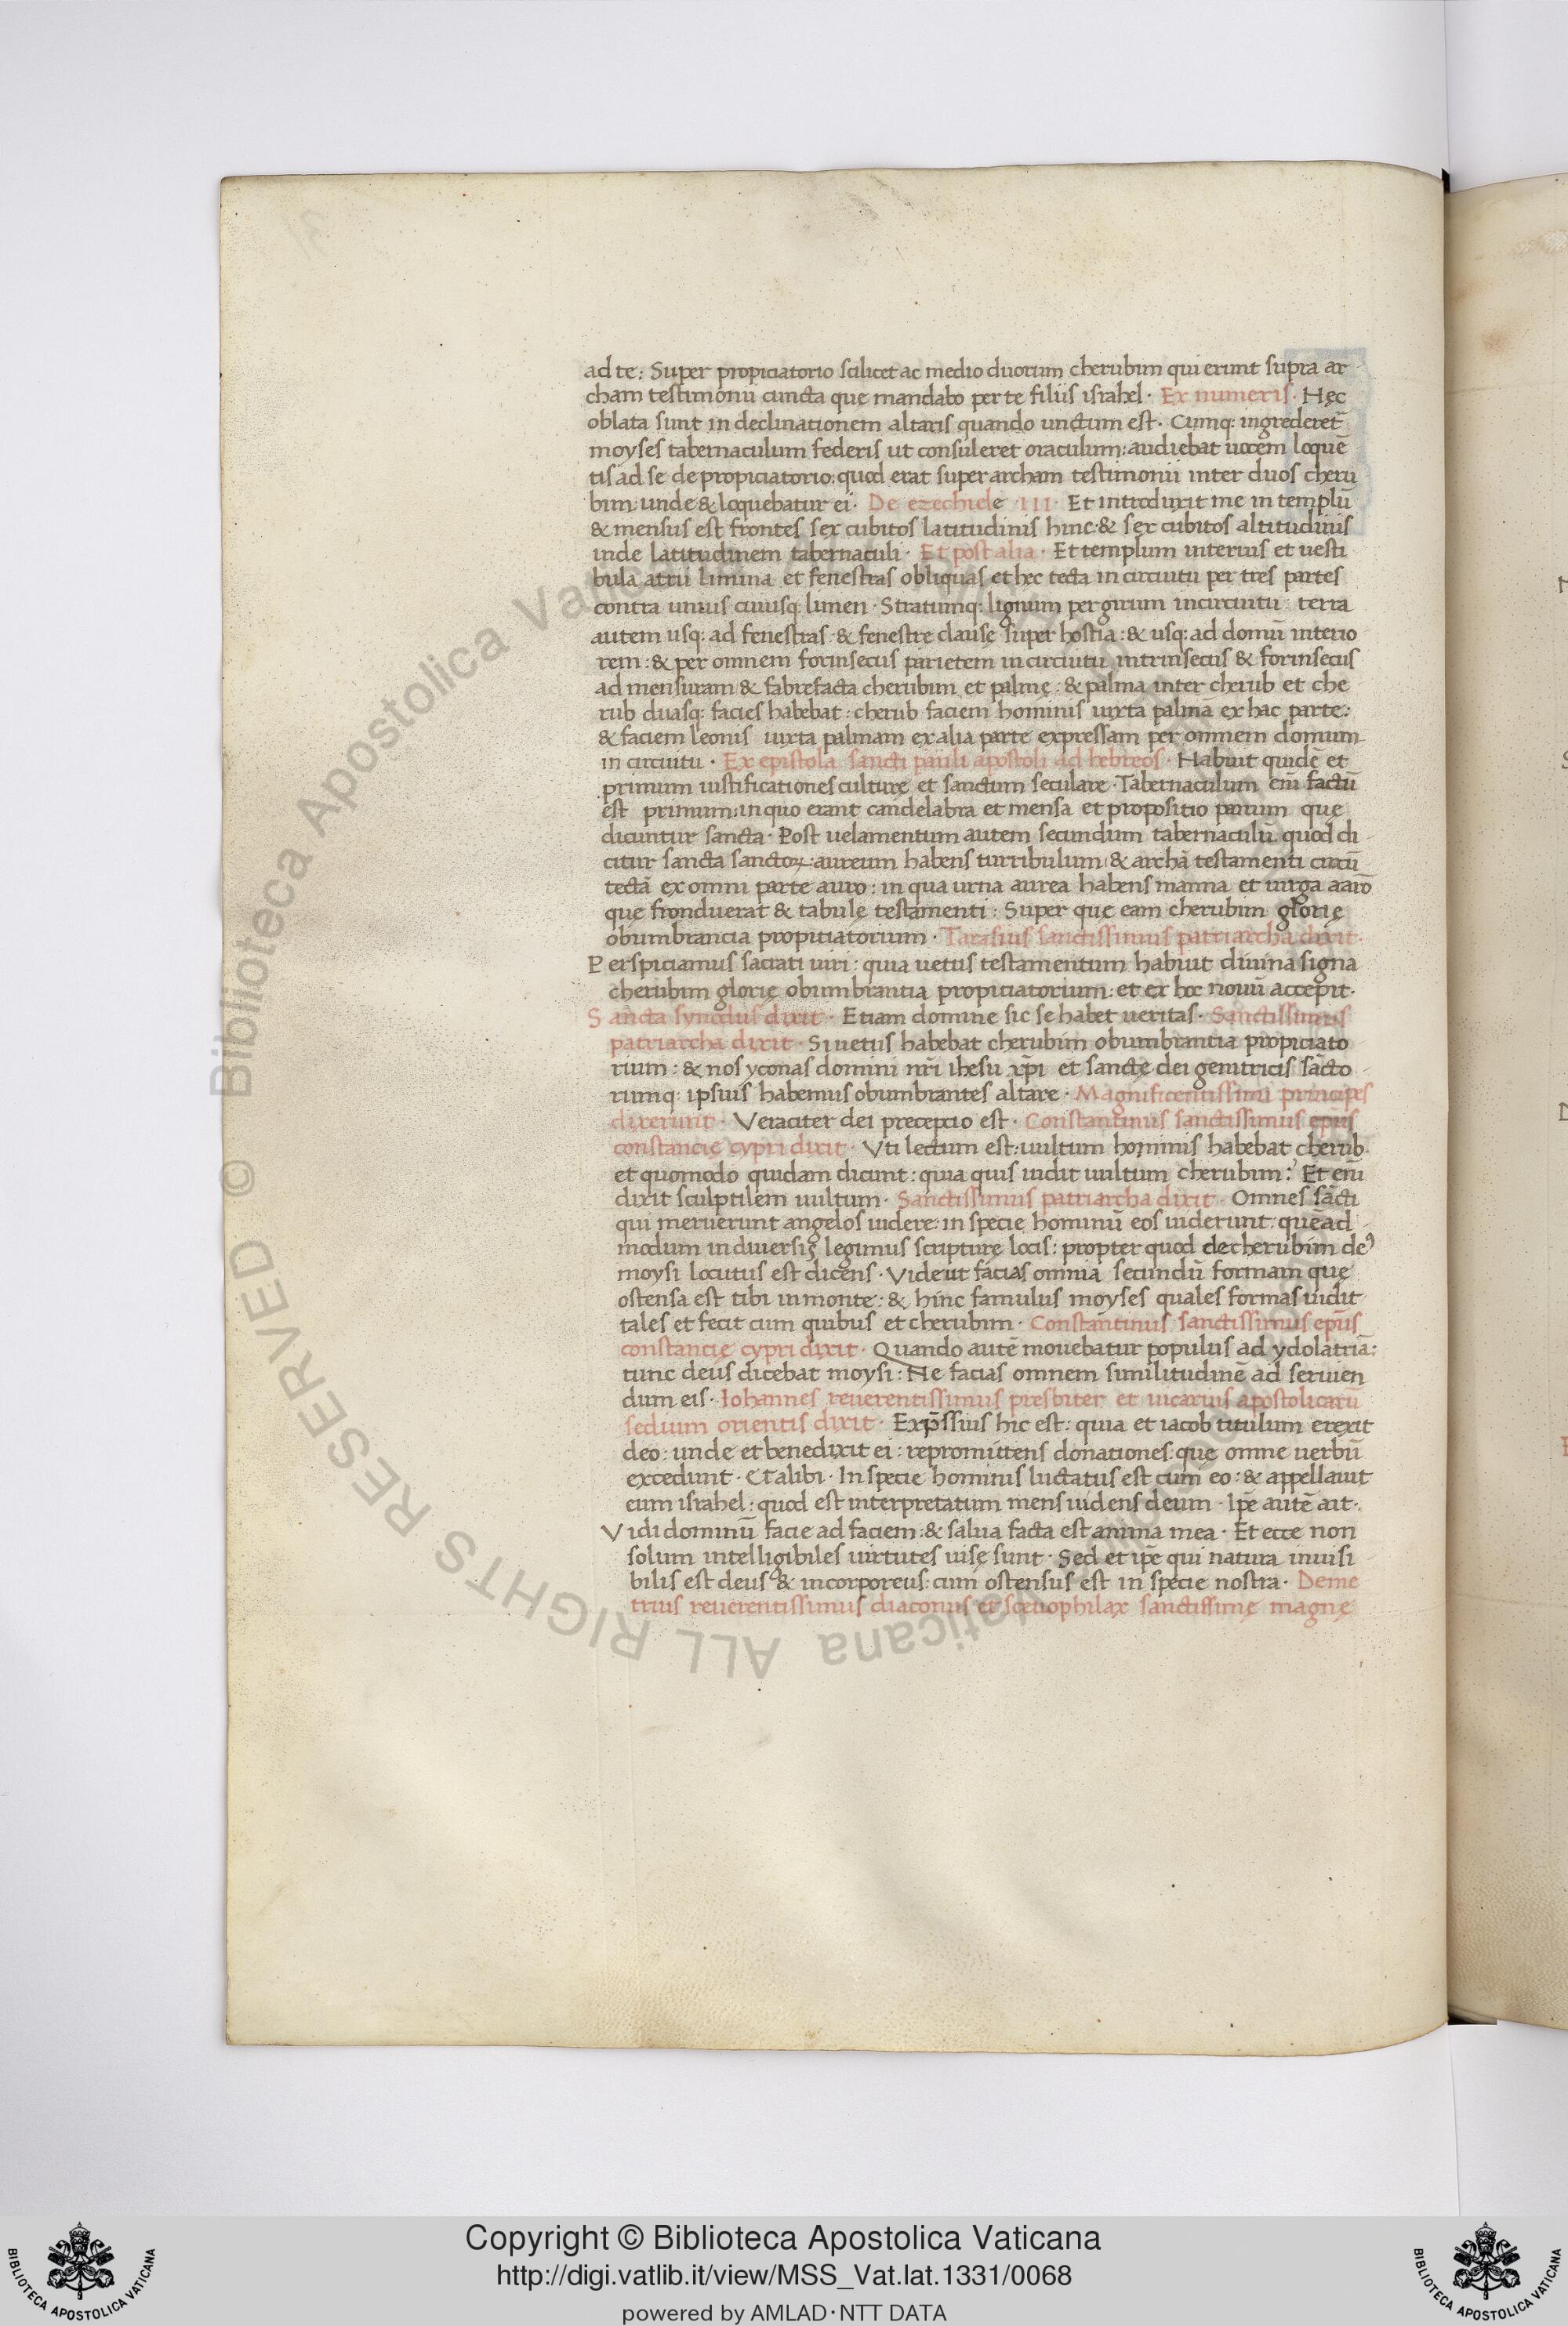 ad te: Super propiciatorio scilicet ac medio duorum cherubim qui erunt supra ar
cham testimonii cuncta que mandabo per te filiis israhel· Ex numeris· Hęc
oblata sunt in declinationem altaris quando unctum est· Cumq: ingrederet̄
moyses tabernaculum federis ut consuleret oraculum: audiebat uocem loquē
tis ad se de propiciatorio: quod erat super archam testimonii inter duos cheru
bim: unde & loquebatur ei· De ezechiele ·III· Et introduxit me in templū
& mensus est frontes sex cubitos latitudinis hinc· & sex cubitos altitudinis
inde latitudinem tabernaculi· Et post alia· Et templum interius et uesti
bula atrii limina et fenestras obliquas et hec tecta in circuitu per tres partes
contra unius cuiusq: limen· Stratumq: lignum per girum in circuitu: terra
autem usq: ad fenestras: & fenestrę clausę super hostia: & usq: ad domū interio
rem: & per omnem forinsecus parietem in circuitu intrinsecus & forinsecus
ad mensuram & fabrefacta cherubim et palmę: & palma inter cherub et che
rub duasq: facies habebat: cherub faciem hominis iuxta palmā ex hac parte:
& faciem leonis iuxta palmam ex alia parte expressam per omnem domum
in circuitu· Ex epistola sancti pauli apostoli ad hebreos· Habuit quidē et
primum iustificationes culturę et sanctum seculare· Tabernaculum eni̅ factū
est primum: in quo erant candelabra et mensa et propositio panum que
dicuntur sancta· Post uelamentum autem secundum tabernaculū quod di
citur sancta sanctoꝝ: aureum habens turribulum: & archā testamenti circū
tectā ex omni parte auro: in qua urna aurea habens manna et uirga aarō
que fronduerat & tabulę testamenti: Super que eam cherubim glorię
obumbrancia propiciatorium· Tarasius sanctissimus patriarcha dixit·
Perspiciamus saciati uiri: quia uetus testamentum habuit diuina signa
cherubim glorię obumbrantia propiciatorium: et ex hoc nouū accepit·
Sancta synodus dixit· Etiam domine sic se habet ueritas· Sanctissimus
patriarcha dixit· Si uetus habebat cherubim obumbrantia propiciato
rium: & nos yconas domini nr̄i ihesu xp̄i et sanctę dei genitricis sācto
rumq: ipsius habemus obumbrantes altare· Magnificentissimi principes
dixerunt· Veraciter dei precepcio est· Constantinus sanctissimus ep̄us
constancię cypri dixit· Vti lectum est: uultum hominis habebat cherub·
et quomodo quidam dicunt: quia quis uidit uultum cherubim? Et eni̅
dixit sculptilem uultum· Sanctissimus patriarcha dixit· Omnes sācti
qui meruerunt angelos uidere: in specie hominū eos uiderunt: quēad
modum in diuersis legimus scripturę locis: propter quod de cherubim deꝰ
moysi locutus est dicens· Vide ut facias omnia secundū formam que
ostensa est tibi in monte: & hinc famulus moyses quales formas uidit
tales et fecit cum quibus et cherubim· Constantinus sanctissimus ep̄us
constancię cypri dixit· Quando autē mouebatur populus ad ydolatriā:
tunc deus dicebat moysi: Ne facias omnem similitudinē ad seruien
dum eis· Iohannes reuerentissimus presbiter et uicarius apostolicarū
sedium orientis dixit· Exp̄ssius hic est: quia et iacob titulum erexit
deo: unde et benedixit ei: repromittens donationes: que omne uerbū
excedunt· Et alibi· In specie hominis luctatus est cum eo: & appellauit
eum israhel: quod est interpretatum mens uidens deum· Ip̄e autē ait·
Vidi dominū facie ad faciem: & salua facta est anima mea· Et ecce non
solum intelligibiles uirtutes uisę sunt· Sed et ip̄e qui natura inuisi
bilis est deus & incorporeus: cum ostensus est in specie nostra· Deme
trius reuerentissimus diaconus et sceuophilax sanctissimę magnę
Biblioteca Apostolica Vaticana ALL RIGHTS RESERVED ©
Copyright © Biblioteca Apostolica Vaticana
http://digi.vatlib.it/view/MSS_Vat.lat.1331/0068
powered by AMLAD·NTT DATA
BIBLIOTECA APOSTOLICA VATICANA
BIBLIOTECA APOSTOLICA VATICANA